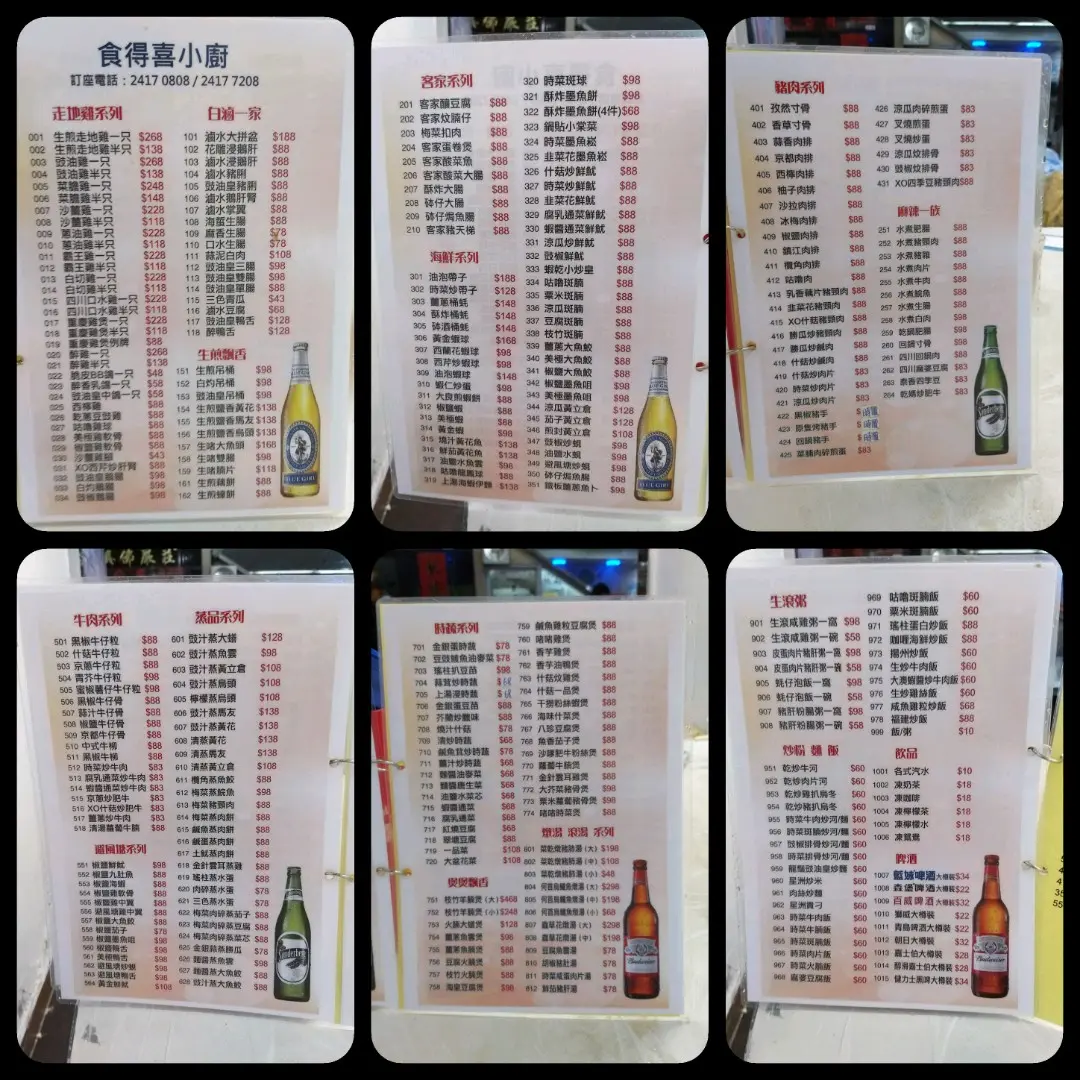 食得喜小廚
訂座電話：2417 0808 / 2417 7208
走地雞系列
001 生煎走地雞一只 $268
002 生煎走地雞半只 $138
003 豉油雞一只 $268
004 豉油雞半只 $138
005 菜膽雞一只 $248
006 菜膽雞半只 $148
007 沙薑雞一只 $228
008 沙薑雞半只 $118
009 蔥油雞一只 $228
010 蔥油雞半只 $118
011 霸王雞一只 $228
012 霸王雞半只 $118
013 白切雞一只 $228
014 白切雞半只 $118
015 四川口水雞一只 $228
016 四川口水雞半只 $118
017 重慶雞煲一只 $228
018 重慶雞煲半只 $118
019 重慶雞煲例牌 $88
020 醉雞一只 $268
021 醉雞半只 $138
022 脆皮BB鴿一只 $48
023 醉香乳鴿一只 $58
024 豉油皇中鴿一只 $58
025 西檸雞 $88
026 乾蔥豆豉雞 $88
027 咕嚕雞球 $88
028 美極雞軟骨 $88
029 椒鹽雞軟骨 $88
030 沙薑雞腳 $43
031 XO西芹炒肝腎 $88
白滷一家
101 滷水大拼盆 $188
102 花雕浸鵝肝 $88
103 滷水浸鵝肝 $88
104 滷水豬脷 $88
105 豉油皇豬脷 $88
106 滷水鵝肝腎 $88
107 滷水掌翼 $88
108 海蜇生腸 $88
109 麻香生腸 $78
110 口水生腸 $78
111 蒜泥白肉 $108
112 豉油皇三腸 $98
113 豉油皇雙腸 $98
114 豉油皇單腸 $88
115 三色青瓜 $43
116 滷水豆腐 $68
117 豉油皇鴨舌 $128
118 醉鴨舌 $128
生煎飄香
151 生煎吊桶 $98
152 白灼吊桶 $98
153 豉油皇吊桶 $98
154 生煎鹽香黃花 $138
155 生煎鹽香馬友 $138
156 生煎鹽香烏頭 $138
157 生啫大魚頭 $168
158 生啫雙腸 $98
159 生啫顏片 $118
160 生煎藕餅 $88
161 生煎蠔餅 $98
162 生煎蝦餅 $88
客家系列
201 客家釀豆腐 $88
202 客家炆腩仔 $88
203 梅菜扣肉 $88
204 客家蛋卷煲 $88
205 客家酸菜魚 $88
206 客家酸菜大腸 $88
207 酥炸大腸 $88
208 砵仔大腸 $88
209 砵仔焗魚腸 $88
210 客家豬天梯 $88
海鮮系列
301 油泡帶子 $188
302 時菜炒帶子 $128
303 薑蔥桶蚝 $148
304 酥炸桶蚝 $148
305 砵酒桶蚝 $148
306 黃金蝦球 $168
307 西蘭花蝦球 $98
308 西芹炒蝦球 $98
309 油泡蝦球 $148
310 蝦仁炒蛋 $98
311 大良煎蝦餅 $98
312 椒鹽蝦 $88
313 美極蝦 $68
314 黃金蝦 $98
315 燒汁黃花魚 $138
316 鮮茄黃花魚 $138
317 油鹽水魚雲 $98
318 咕嚕龍鳳球 $88
319 上湯海蝦伊麵 $138
320 時菜斑球 $98
321 酥炸墨魚餅 $98
322 酥炸墨魚餅(4件) $68
323 鍋貼小棠菜 $98
324 時菜墨魚崧 $88
325 韭菜花墨魚崧 $88
326 什菇炒鮮魷 $88
327 時菜炒鮮魷 $88
328 韭菜花鮮魷 $88
329 腐乳通菜鮮魷 $88
330 蝦醬通菜鮮魷 $88
331 涼瓜炒鮮魷 $88
332 豉椒鮮魷 $88
333 蝦乾小炒皇 $88
334 咕嚕斑腩 $88
335 粟米斑腩 $88
336 涼瓜斑腩 $88
337 豆腐斑腩 $88
338 枝竹斑腩 $88
339 薑蔥大魚餃 $88
340 美極大魚餃 $88
341 椒鹽大魚餃 $88
342 椒鹽墨魚咀 $98
343 美極墨魚咀 $98
344 涼瓜黃立倉 $128
345 茄子黃立倉 $128
346 煎封黃立倉 $108
347 豉椒炒蜆 $88
348 油鹽水蜆 $98
349 避風塘炒蜆 $98
350 砵仔焗魚腸 $88
351 鐵板薑蔥魚卜 $98
豬肉系列
401 孜然寸骨 $88
402 香草寸骨 $88
403 蒜香肉排 $88
404 京都肉排 $88
405 西檸肉排 $88
406 柚子肉排 $88
407 沙拉肉排 $88
408 冰梅肉排 $88
409 椒鹽肉排 $88
410 鎮江肉排 $88
411 欖角肉排 $88
412 咕嚕肉 $88
413 乳香藕片豬頸肉 $88
414 韭菜花豬頸肉 $88
415 XO什菇豬頸肉 $88
416 勝瓜炒豬頸肉 $88
417 勝瓜炒鹹肉 $88
418 什菇炒鹹肉 $88
419 什菇炒肉片 $83
420 時菜炒肉片 $83
421 涼瓜炒肉片 $83
422 黑椒豬手 $時價
423 原隻烤豬手 $時價
424 回鍋豬手 $時價
425 菜脯肉碎煎蛋 $83
426 涼瓜肉碎煎蛋 $83
427 叉燒煎蛋 $83
428 叉燒炒蛋 $83
429 涼瓜炆排骨 $83
430 豉椒炆排骨 $83
431 XO四季豆豬頸肉 $88
麻辣一族
251 水煮肥腸 $88
252 水煮豬頸肉 $88
253 水煮豬雜 $88
254 水煮肉片 $88
255 水煮牛肉 $88
256 水煮鯇魚 $88
257 水煮生腸 $88
258 水煮白肉 $98
259 乾鍋肥腸 $98
260 回鍋寸骨 $88
261 四川回鍋肉 $88
262 四川麻婆豆腐 $88
263 泰香四季豆 $83
264 乾煸炒肥牛 $83
牛肉系列
501 黑椒牛仔粒 $88
502 什菇牛仔粒 $88
503 京蔥牛仔粒 $88
504 青芥牛仔粒 $98
505 蜜椒薯仔牛仔粒 $98
506 黑椒牛仔骨 $88
507 蒜汁牛仔骨 $88
508 椒鹽牛仔骨 $88
509 京都牛仔骨 $88
510 中式牛柳 $88
511 黑椒牛柳 $88
512 時菜炒牛肉 $83
513 腐乳通菜炒牛肉 $83
514 蝦醬通菜炒牛肉 $83
515 京蔥炒肥牛 $83
516 XO什菇炒肥牛 $83
517 薑蔥炒牛肉 $83
518 清湯蘿蔔牛腩 $88
避風塘系列
551 椒鹽鮮魷 $98
552 椒鹽九肚魚 $88
553 椒鹽海蝦 $88
554 椒鹽雞軟骨 $88
555 椒鹽雞中翼 $88
556 避風塘雞中翼 $88
557 椒鹽大魚餃 $88
558 椒鹽茄子 $78
559 椒鹽墨魚咀 $98
560 椒鹽鴨舌 $98
561 美極鴨舌 $98
562 避風塘炒蝦 $88
563 避風塘鴨舌 $98
564 黃金鮮魷 $108
蒸品系列
601 豉汁蒸大鱔 $128
602 豉汁蒸魚雲 $98
603 豉汁蒸黃立倉 $108
604 豉汁蒸烏頭 $108
605 檸檬蒸烏頭 $108
606 豉汁蒸馬友 $138
607 豉汁蒸黃花 $138
608 清蒸黃花 $138
609 清蒸馬友 $138
610 清蒸黃立倉 $108
611 欖角蒸魚餃 $88
612 梅菜蒸鯇魚 $98
613 梅菜蒸豬頸肉 $88
614 梅菜蒸肉餅 $88
615 鹹魚蒸肉餅 $88
616 鹹蛋蒸肉餅 $88
617 土魷蒸肉餅 $88
618 金針雲耳蒸雞 $88
619 瑤柱蒸水蛋 $88
620 肉碎蒸水蛋 $78
621 三色蒸水蛋 $78
622 梅菜肉碎蒸茄子 $88
623 梅菜肉碎蒸豆腐 $88
624 梅菜肉碎蒸菜芯 $88
625 金銀蒜蒸勝瓜 $78
626 麵醬蒸魚雲 $98
627 麵醬蒸大魚餃 $88
628 豉汁蒸大魚餃 $88
時蔬系列
701 金銀蛋時蔬 $78
702 豆豉鯪魚油麥菜 $78
703 瑤柱扒豆苗 $98
704 蒜茸炒時蔬 $68
705 上湯浸時蔬 $68
706 金銀蛋豆苗 $88
707 芥蘭炒臘味 $88
708 燒汁什菇 $78
709 清炒時蔬 $68
710 鹹魚茸炒時蔬 $78
711 薑汁炒時蔬 $68
712 麵醬油麥菜 $68
713 麵醬唐生菜 $68
714 油鹽水菜芯 $68
715 蝦醬通菜 $68
716 腐乳通菜 $68
717 紅燒豆腐 $68
718 翠塘豆腐 $88
719 一品菜 $108
720 大盆花菜 $108
煲煲飄香
751 枝竹羊腩煲 (大) $468
752 枝竹羊腩煲 (小) $248
753 火腩大蠔煲 $128
754 薑蔥魚雲煲 $98
755 薑蔥魚腩煲 $88
756 豆腐火腩煲 $88
757 枝竹火腩煲 $88
758 海皇豆腐煲 $98
759 鹹魚雞粒豆腐煲 $88
760 啫啫雞煲 $88
761 香芋雞煲 $88
762 香芋油鴨煲 $88
763 什菇炆雞煲 $88
764 什菇一品煲 $88
765 干撈粉絲蝦煲 $88
766 海味什菜煲 $88
767 八珍豆腐煲 $88
768 魚香茄子煲 $88
769 沙嗲肥牛粉絲煲 $88
770 蘿蔔牛腩煲 $88
771 金針雲耳雞煲 $88
772 大芥菜豬骨煲 $88
773 粟米蘿蔔豬骨煲 $88
774 啫啫時菜煲 $88
燉湯 滾湯 系列
801 菜乾燉豬肺湯 (大) $198
802 菜乾燉豬肺湯 (中) $108
803 菜乾燉豬肺湯 (小) $48
804 何首烏鯪魚燉湯 (大) $298
805 何首烏鯪魚燉湯 (中) $198
806 何首烏鯪魚燉湯 (小) $68
807 蟲草花燉湯 (大) $298
808 蟲草花燉湯 (中) $198
809 豆腐魚腩湯 $78
810 胡椒豬肚湯 $78
811 時菜咸蛋肉片湯 $78
812 鮮茄豬肝湯 $78
生滾粥
901 生滾咸雞粥一窩 $98
902 生滾咸雞粥一碗 $58
903 皮蛋肉片豬肝粥一窩 $98
904 皮蛋肉片豬肝粥一碗 $58
905 蚝仔泡飯一窩 $98
906 蚝仔泡飯一碗 $58
907 豬肝粉腸粥一窩 $98
908 豬肝粉腸粥一碗 $58
炒粉 麵 飯
951 乾炒牛河 $60
952 乾炒肉片河 $60
953 乾炒雞扒烏冬 $60
954 乾炒豬扒烏冬 $60
955 時菜牛肉炒河/麵 $60
956 時菜斑腩炒河/麵 $60
957 豉椒排骨炒河/麵 $60
958 時菜排骨炒河/麵 $60
959 龍鬚豉油皇炒麵 $60
960 星洲炒米 $60
961 肉絲炒麵 $60
962 星洲貴刁 $60
963 時菜牛肉飯 $60
964 時菜牛腩飯 $60
965 時菜斑腩飯 $60
966 時菜肉片飯 $60
967 時菜火腩飯 $60
968 麻婆豆腐飯 $60
969 咕嚕斑腩飯 $60
970 粟米斑腩飯 $60
971 瑤柱蛋白炒飯 $88
972 咖喱海鮮炒飯 $88
973 揚州炒飯 $60
974 生炒牛肉飯 $60
975 大澳蝦醬炒牛肉飯 $60
976 生炒雞絲飯 $60
977 咸魚雞粒炒飯 $68
978 福建炒飯 $88
999 飯/粥 $10
飲品
1001 各式汽水 $10
1002 凍奶茶 $18
1003 凍咖啡 $18
1004 凍檸檬茶 $18
1005 凍檸檬水 $18
1006 凍鴛鴦 $18
啤酒
1007 藍妹啤酒大樽裝 $34
1008 森堡啤酒大樽裝 $22
1009 百威啤酒大樽裝 $32
1010 獅威大樽裝 $22
1011 青島啤酒大樽裝 $22
1012 朝日大樽裝 $32
1013 嘉士伯大樽裝 $28
1014 醇滑嘉士伯大樽裝 $28
1015 健力士黑啤大樽裝 $34
BLUE GIRL
Budweiser
Budweiser